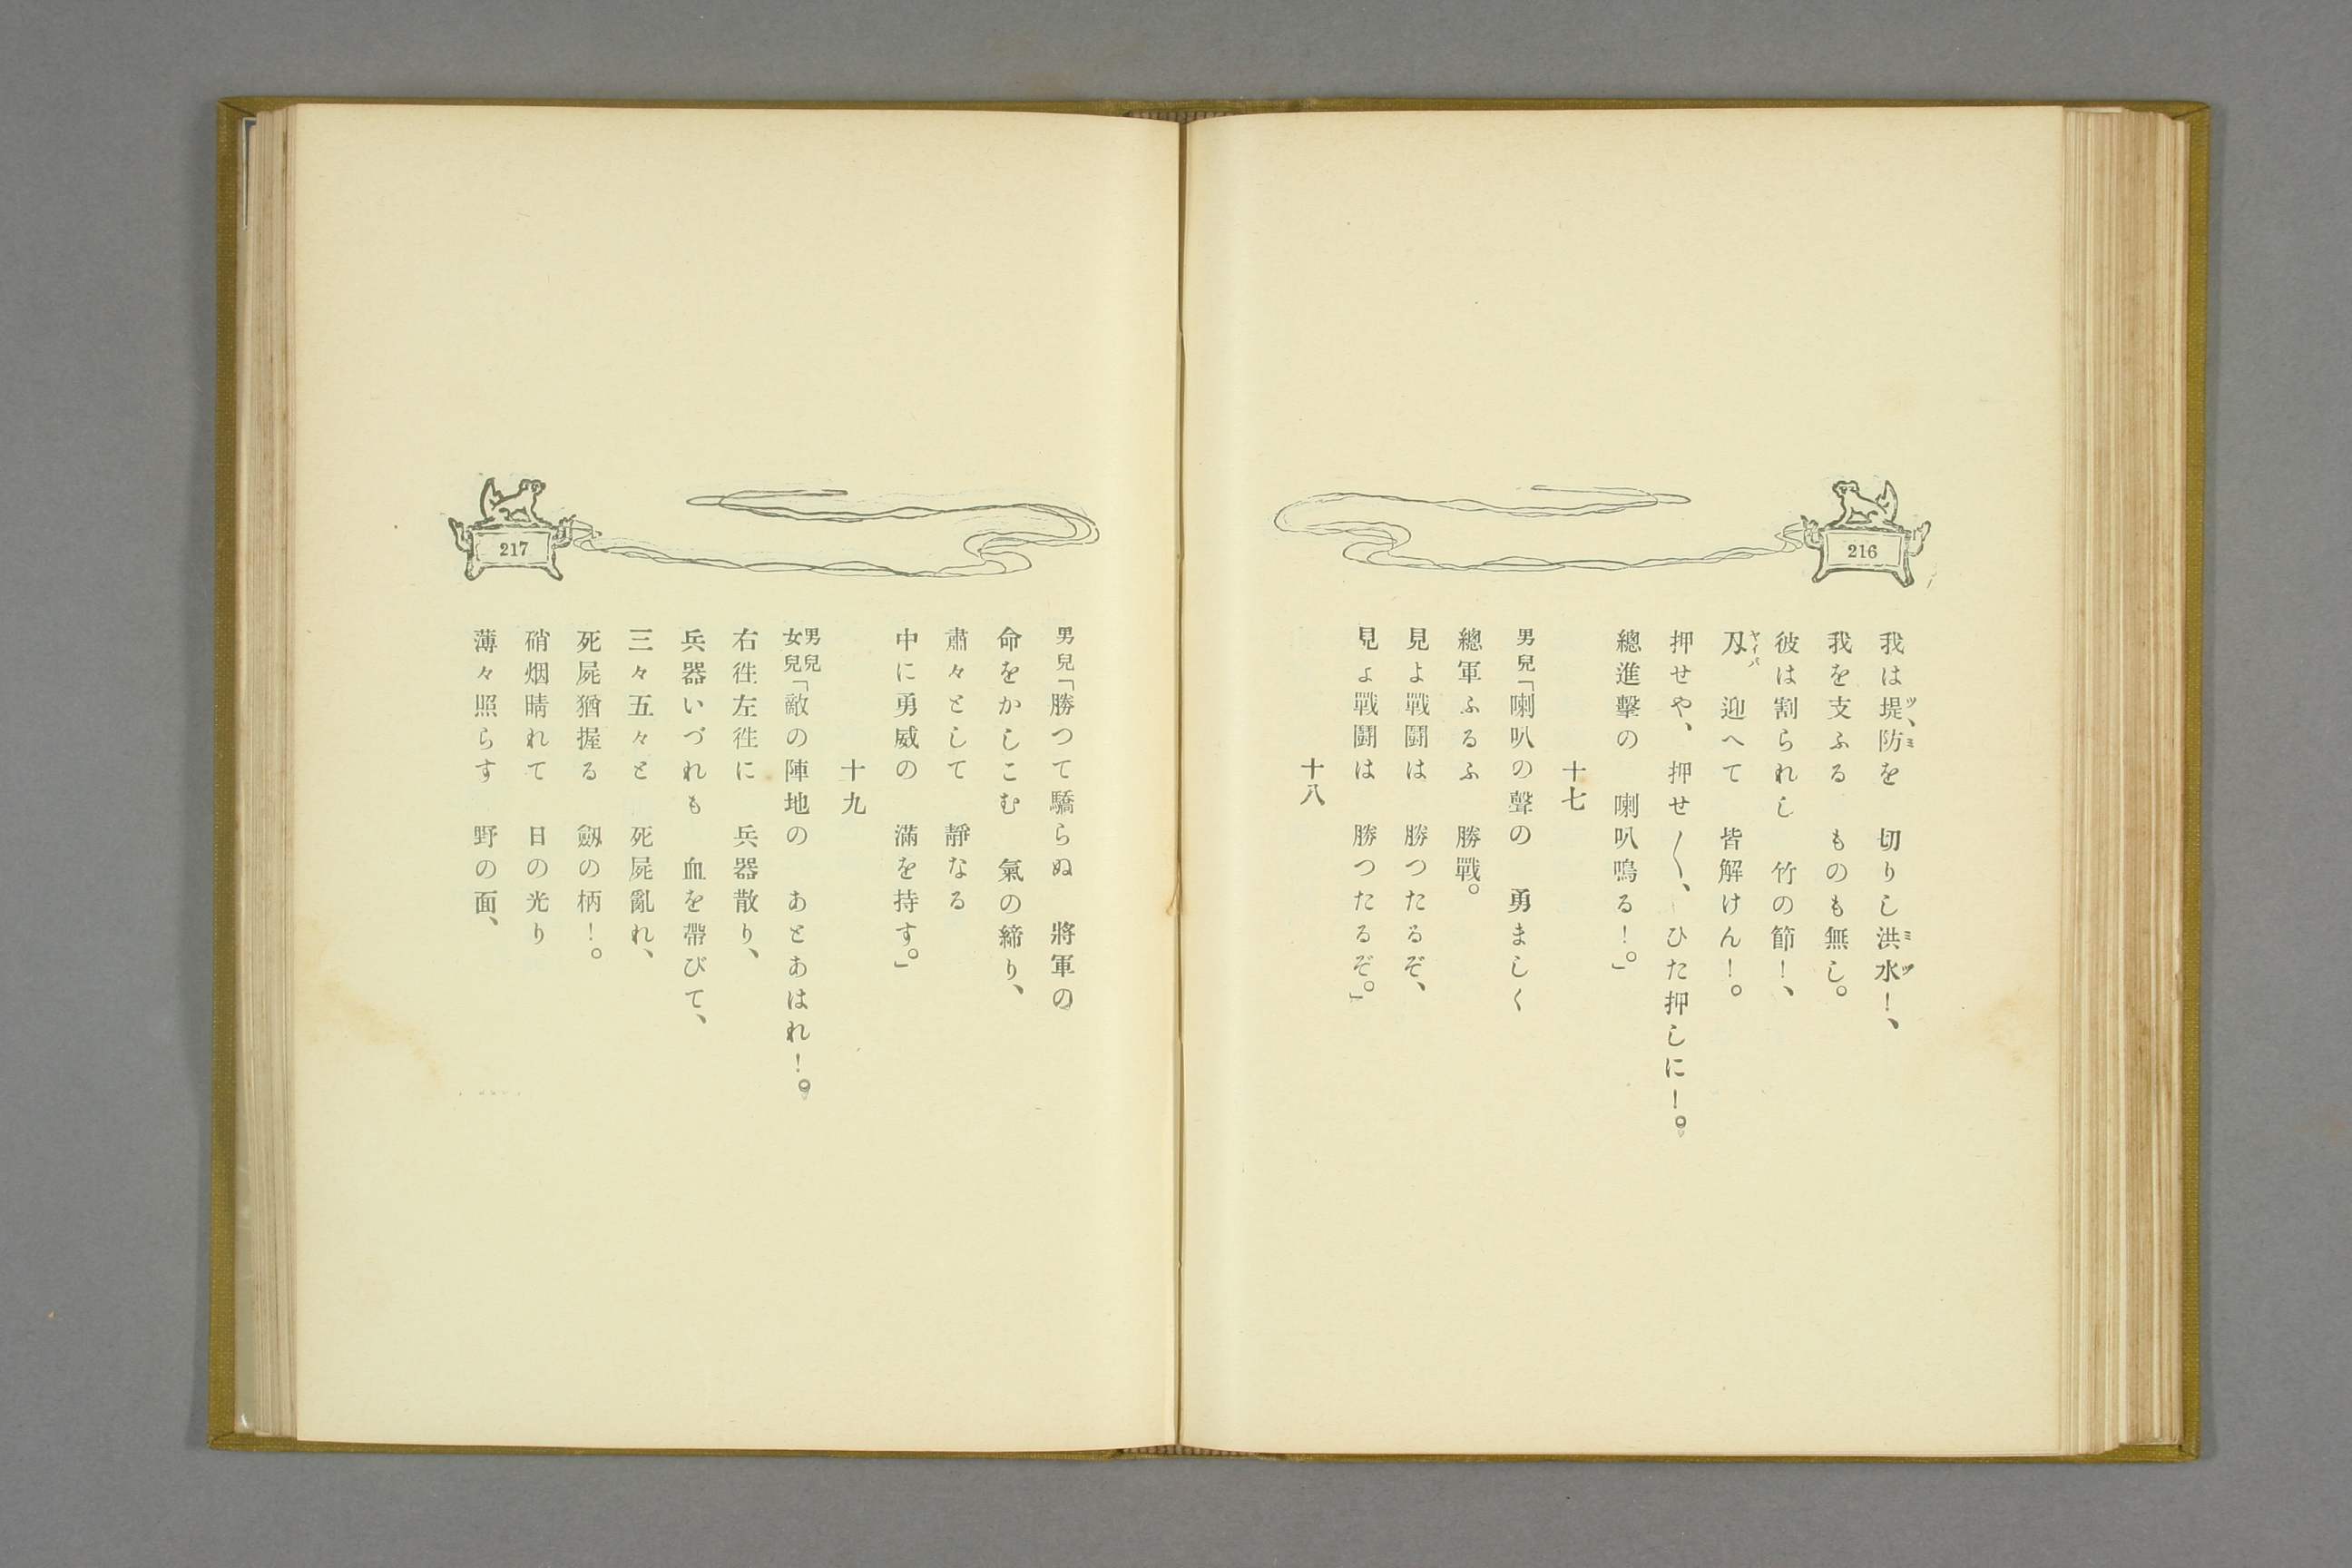 216
我は堤防を　切りし洪水！、
ツヽミ
ミヅ
我を支ふる　ものも無し。
彼は割られし　竹の節！、
刄　迎へて　皆解けん！。
ヤイバ
押せや、押せ〱、ひた押しに！。
總進擊の　喇叭鳴る！。」
十七
男兒「喇叭の聲の　勇ましく
總軍ふるふ　勝戰。
見よ戰鬪は　勝つたるぞ、
見よ戰鬪は　勝つたるぞ。」
十八
217
男兒「勝つて驕らぬ　將軍の
命をかしこむ　氣の締り、
肅々として　靜なる
中に勇威の　滿を持す。」
十九
男兒
女兒「敵の陣地の　あとあはれ！。
右徃左徃に　兵器散り、
兵器いづれも　血を帶びて、
三々五々と　死屍亂れ、
死屍猶握る　劔の柄！。
硝烟晴れて　日の光り
薄々照らす　野の面、